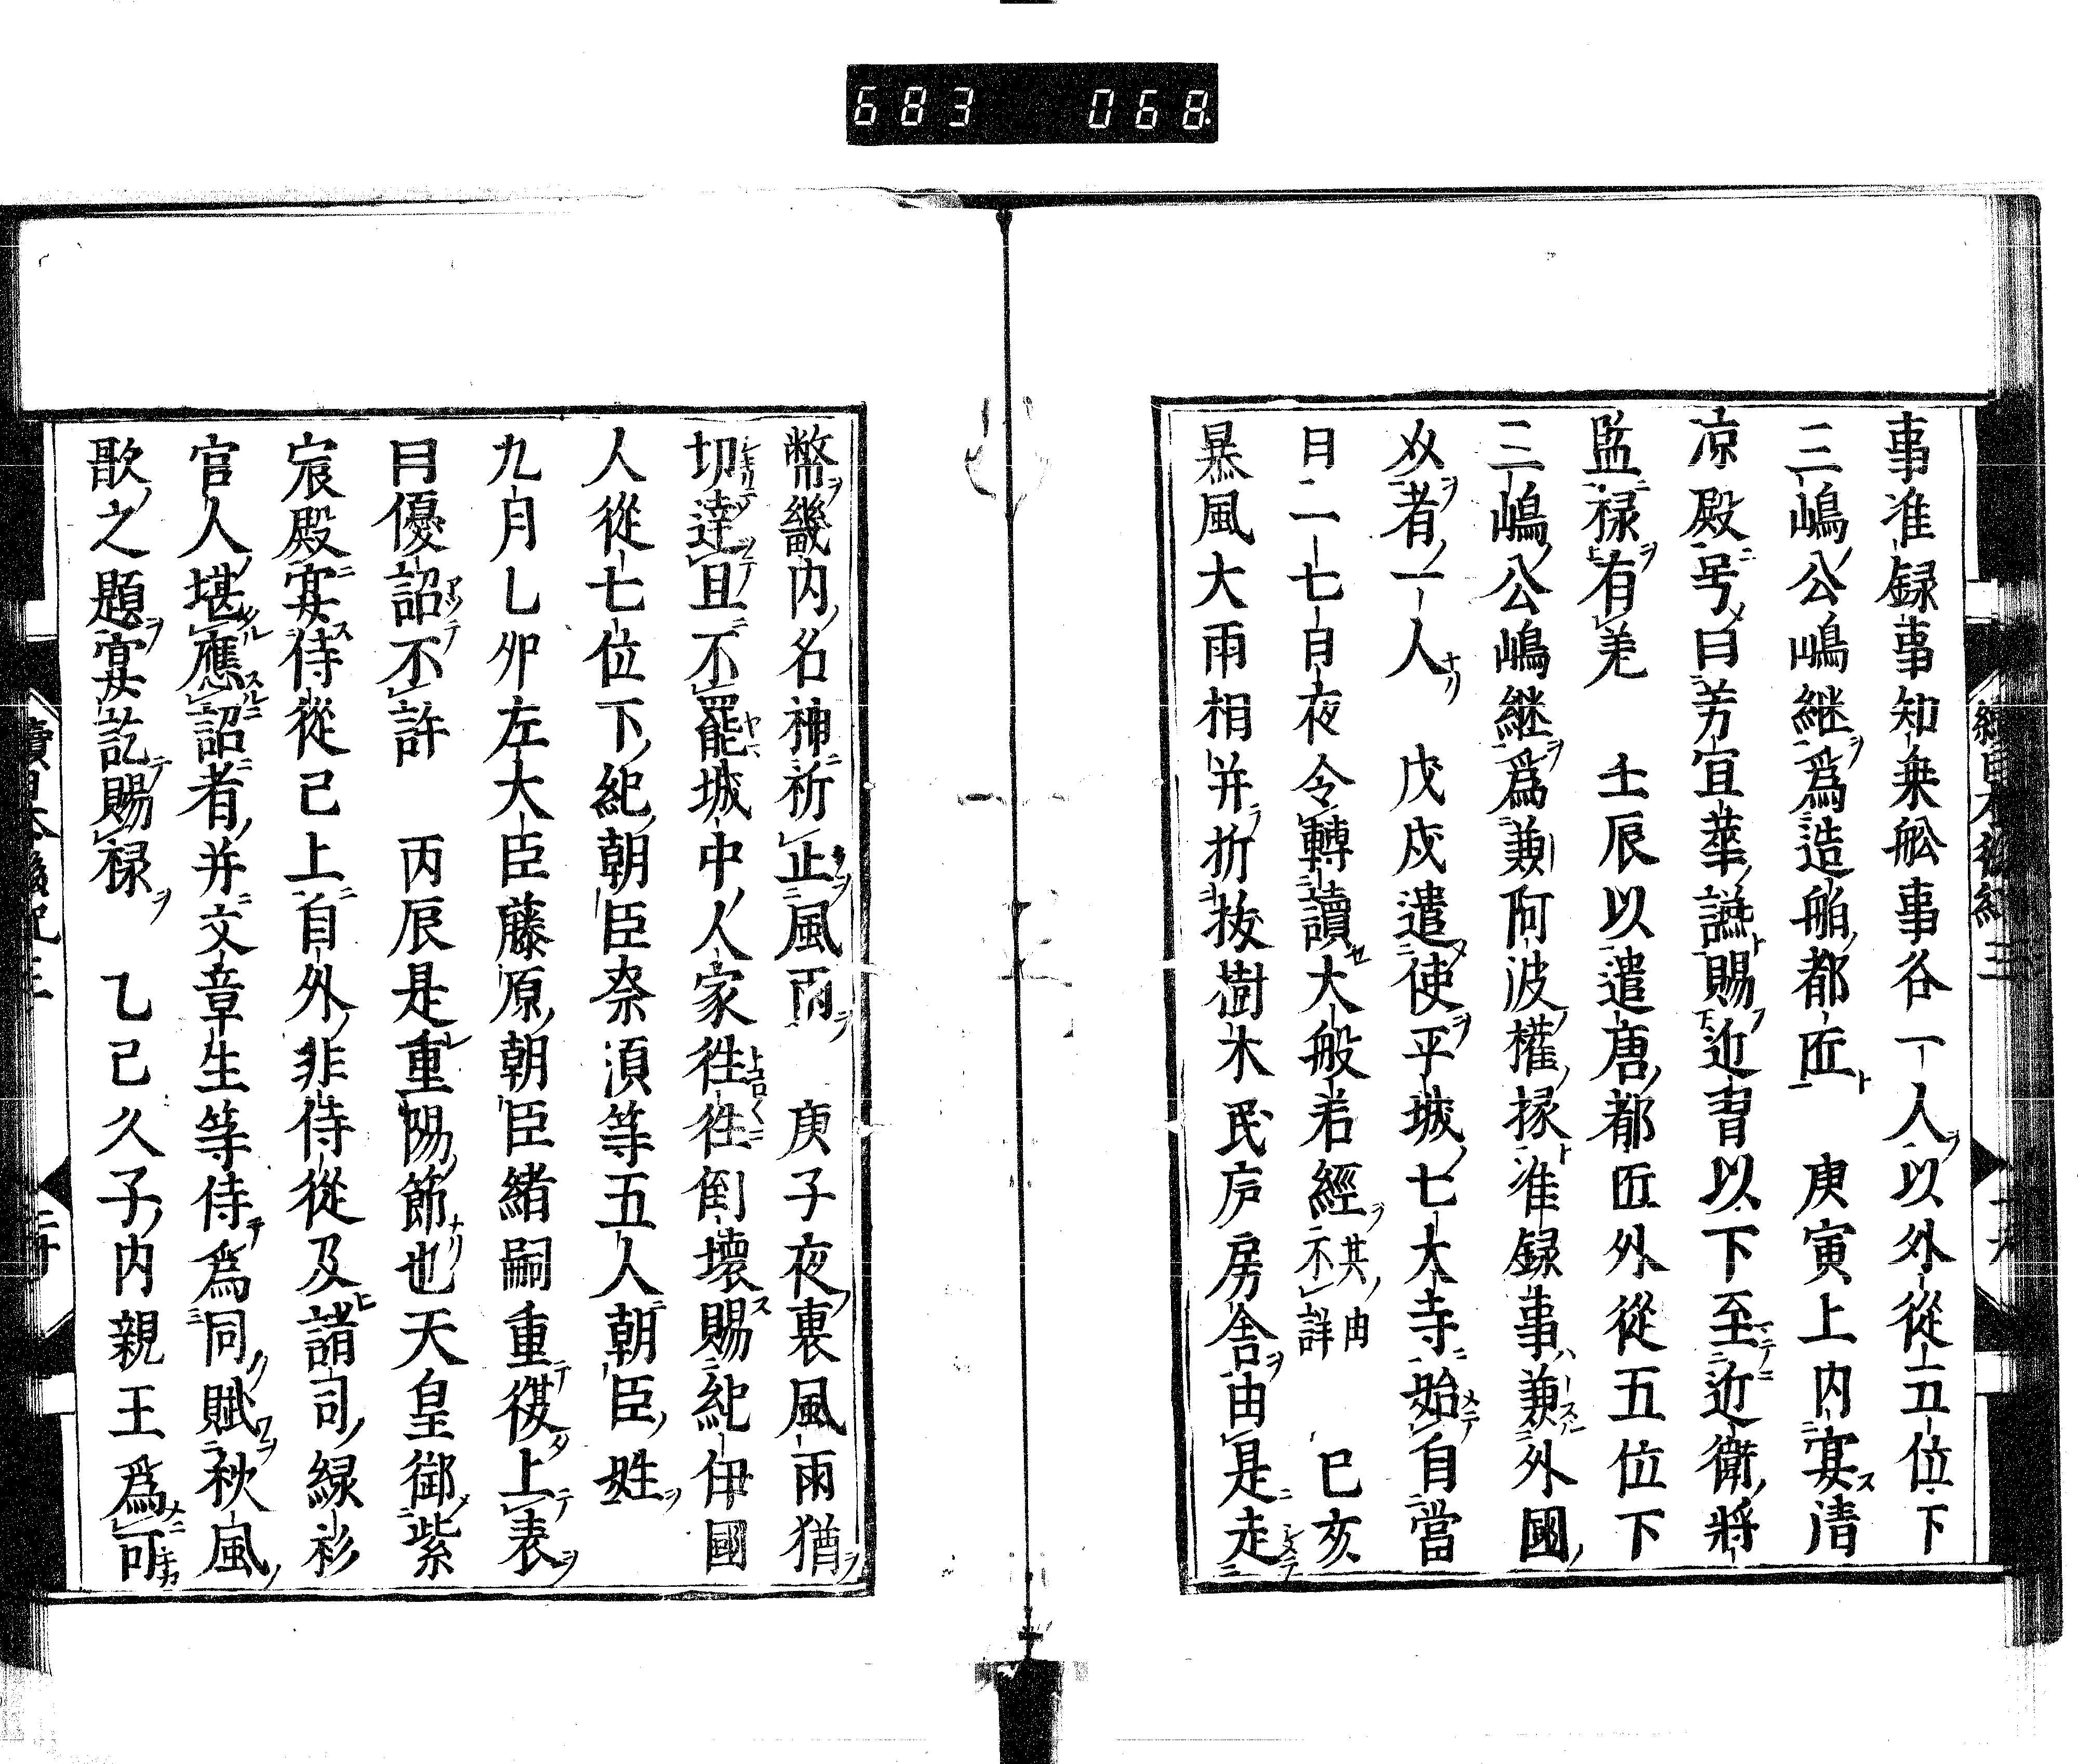 683 068
事准録事知乗舩事各一人以外從五位下
三嶋公嶋継爲造舶都匠 庚寅上内宴清
凉殿号曰芳宜華讌賜近習以下至近衛將
監禄有差 壬辰以遣唐都匠外從五位下
三嶋公嶋継爲兼阿波權掾准録事兼外國
㸚者一人 戊戌遣使平城七大寺始自當
月二七日夜令轉讀大般若經其由不詳 己亥
暴風大雨相并折抜樹木民庐房舎由是走
幣畿内名神祈止風雨 庚子夜裏風雨猶
切達且不罷城中人家徃徃倒壊賜紀伊國
人從七位下紀朝臣奈湏等五人朝臣姓
九月乚夘左大臣藤原朝臣緒嗣重復上表
月優詔不許 丙辰是重陽節也天皇御紫
宸殿宴侍從已上自外非侍從及諸司緑衫
官人堪應詔者并文章生等侍爲同賦秋風
歌之題宴訖賜禄 乙已久子内親王爲可
續日本後紀 三